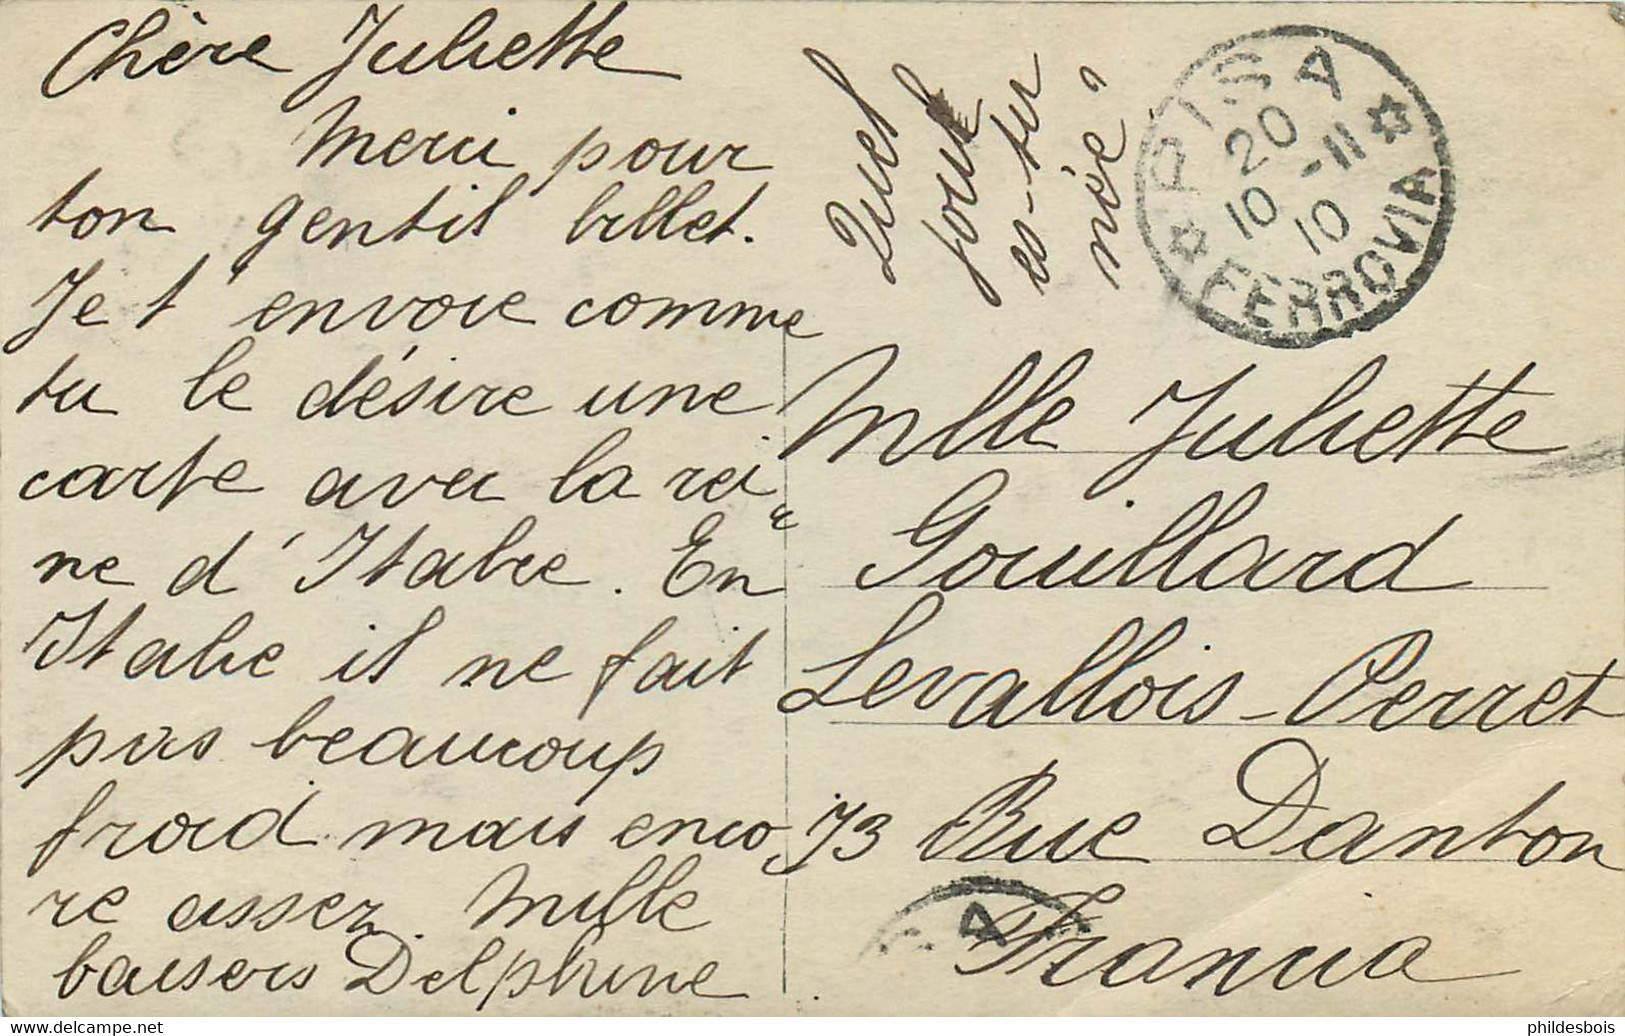 Chère Juliette
Merci pour
ton gentil billet.
Je t'envoie comme
tu le désire une
carte avec la rei-
ne d'Italie. En
Italie il ne fait
pas beaucoup
froid mais enco-
re assez. Mille
baisers Delphine
Quel
jour
es-tu
née?
PISA
20
10 -11
10
FERROVIA
Mlle Juliette
Gouillard
Levallois-Perret
73 Rue Danton
Francia
SA
phildesbois